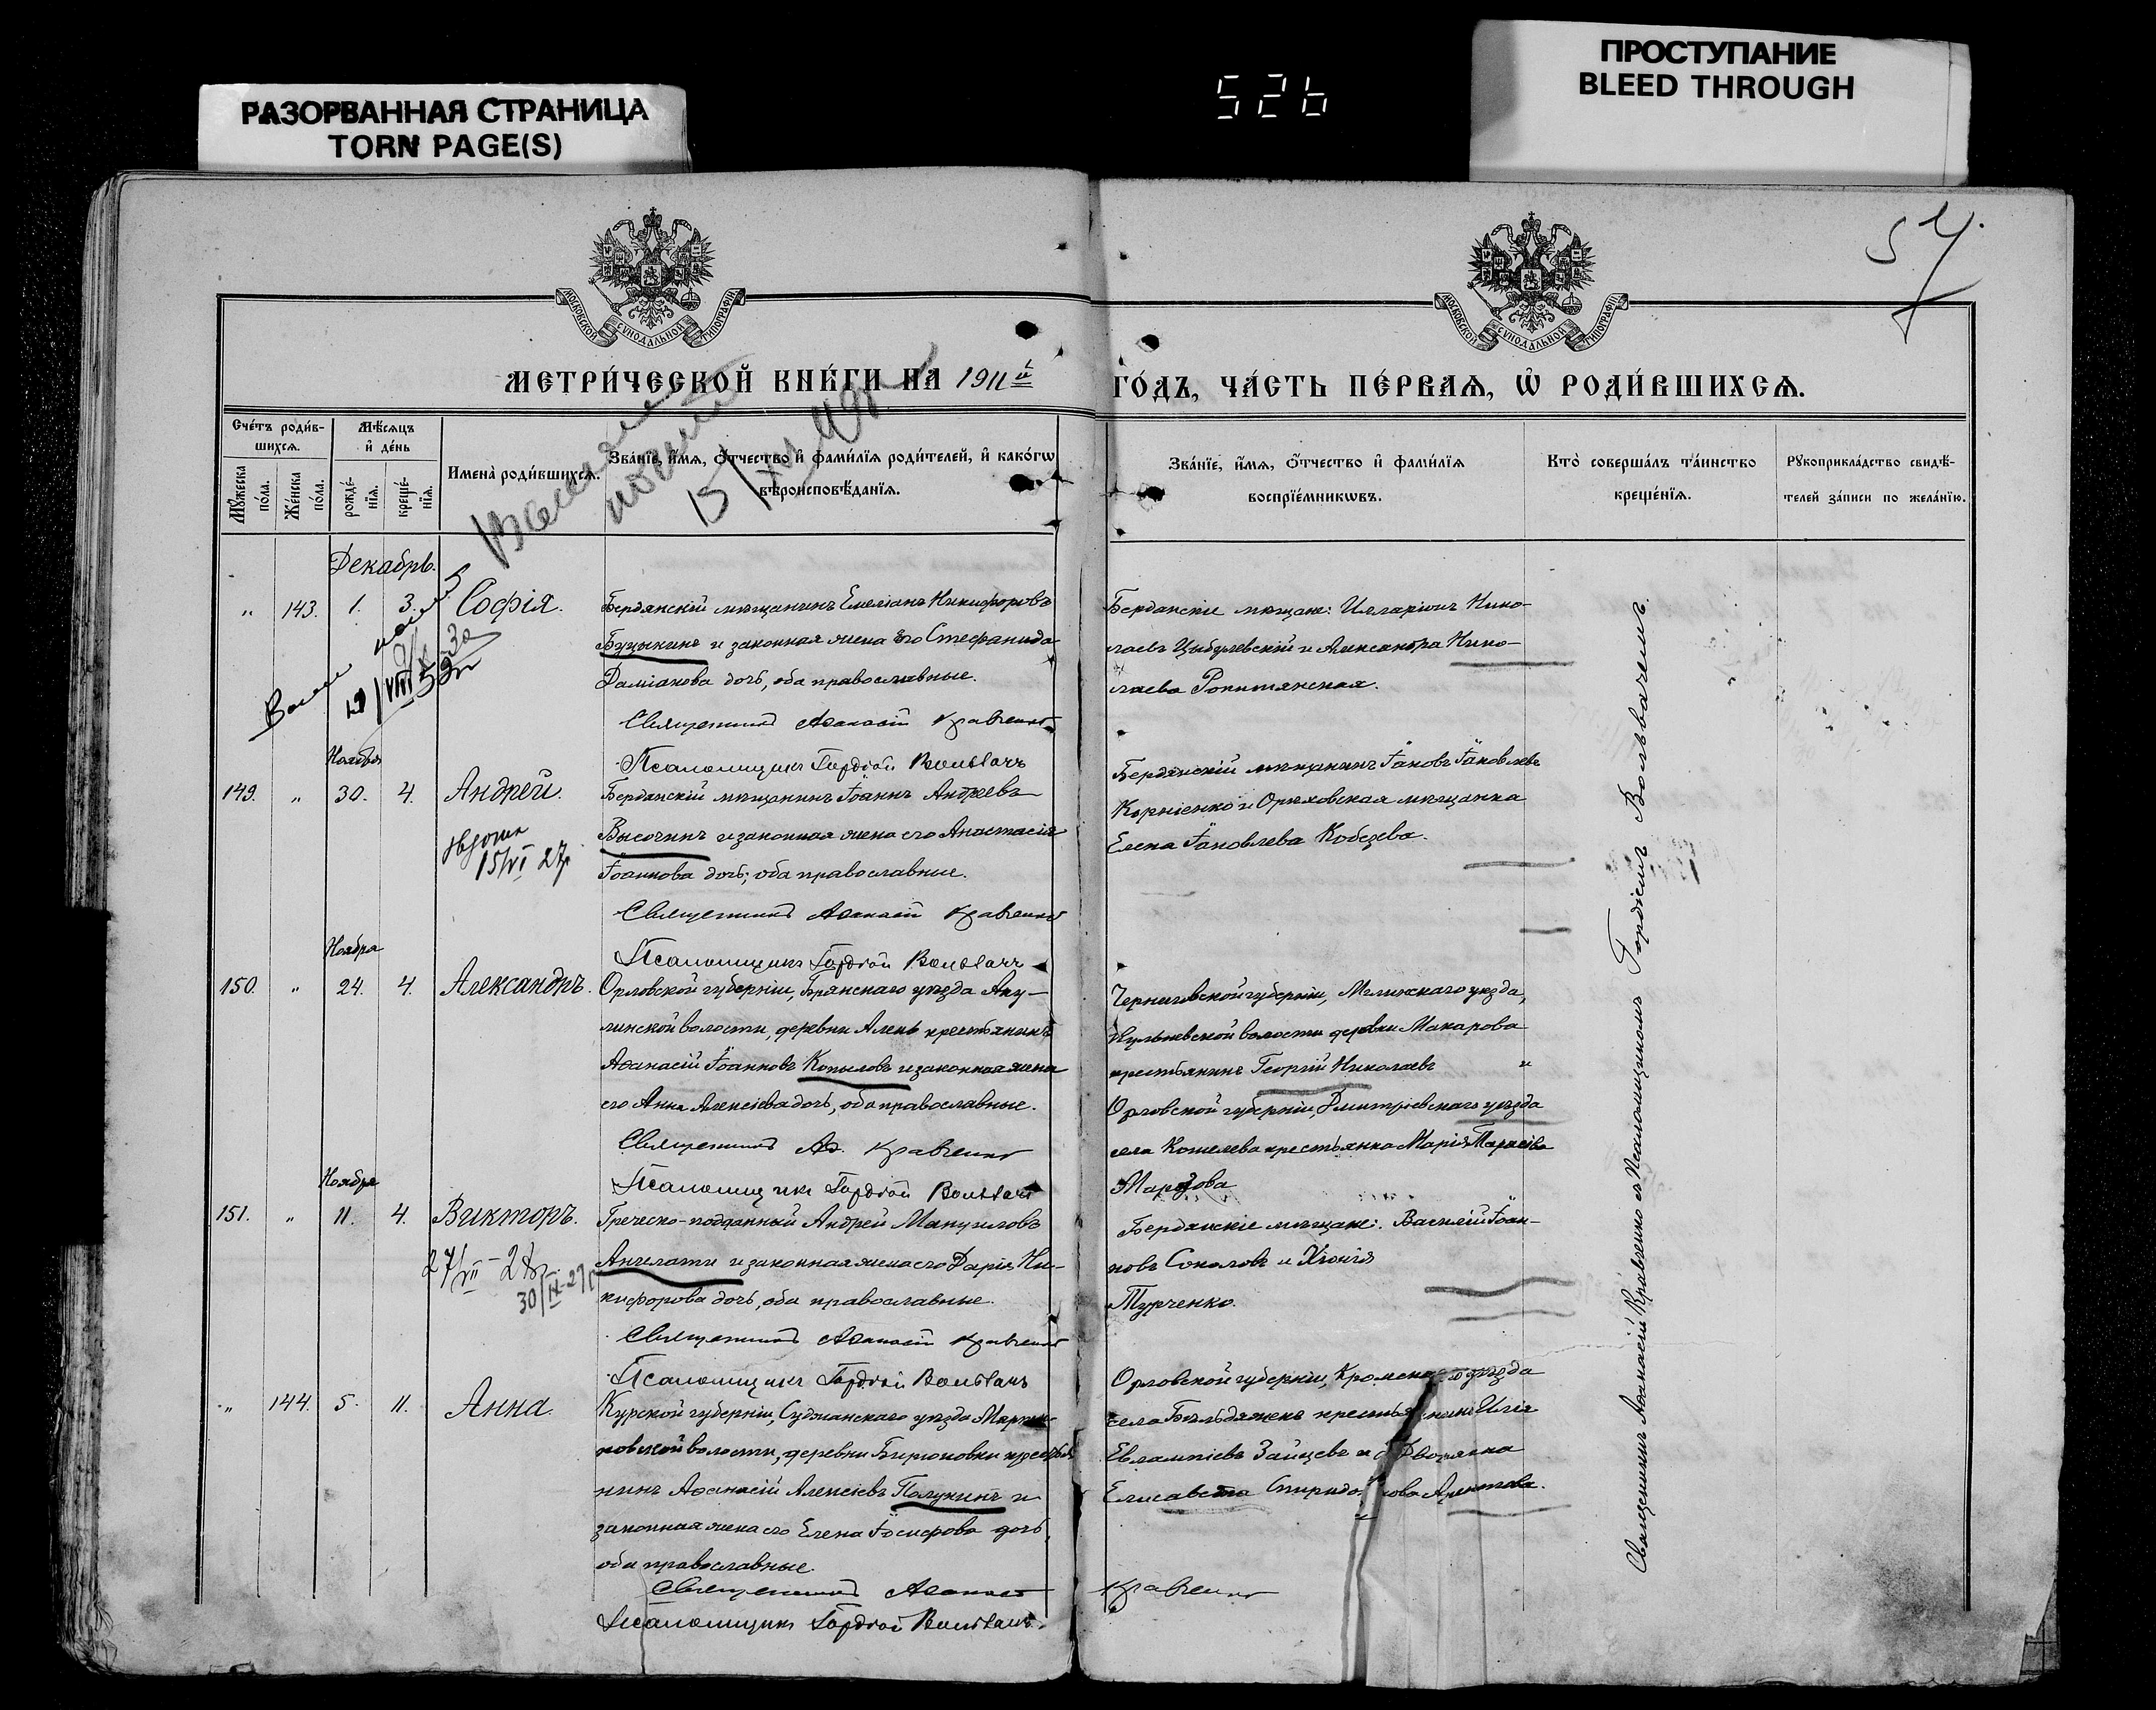 РАЗОРВАННАЯ СТРАНИЦА
TORN PAGE(S)
526
ПРОСТУПАНИЕ
BLEED THROUGH
МОСКОВСКОЙ СѴНОДАЛЬНОЙ ТИПОГРАФІИ
МОСКОВСКОЙ СѴНОДАЛЬНОЙ ТИПОГРАФІИ
МЕТРИ́ЧЕСКОЙ КНИ́ГИ НА 1911й
ГО́ДЪ, ЧА́СТЬ ПЕ́РВАѦ, Ѡ҆ РОДИ́ВШИХСѦ.
Сче́тъ роди́в-
шихсѧ.
Мꙋ́жеска по́ла.
Же́нска по́ла.
Мѣ́сѧцъ
и҆ де́нь
рожде́-
нїѧ.
креще́-
нїѧ.
Имена̀ роди́вшихсѧ.
Зва́нїе, и҆́мѧ, ѻ҆́тчество и҆ фами́лїѧ роди́телей, и҆ како́гѡ
вѣ̀роисповѣ́данїѧ.
Зва́нїе, и҆́мѧ, ѻ҆́тчество и҆ фами́лїѧ
воспрїе́мникѡвъ.
Кто̀ соверша́лъ та́инство
креще́нїѧ.
Рꙋкоприкла́дство свидѣ́-
телей за́писи по жела́нїю.
Декабрь.
" 143. 1. 3. Софія.
Бердянскій мѣщанинъ Емеліанъ Никифоровъ
Буцыкинъ и законная жена его Стефанида
Даміанова дочь, оба православные.
Священникъ Аѳанасій Кравченко
Псаломщикъ Гордій Вольвачъ
Бердянскіе мѣщане: Илларіонъ Нико-
лаевъ Цыбулевскій и Александра Нико-
лаева
Ноября
149. " 30. 4. Андрей.
15/VI 27
Бердянскій мѣщанинъ Іоаннъ Андреевъ
Высочинъ и законная жена его Анастасія
Іоаннова дочь, оба православные.
Священникъ Аѳанасій Кравченко
Псаломщикъ Гордій Вольвачъ
Бердянскій мѣщанинъ Іаковъ Іаковлевъ
Корніенко и Орѣховская мѣщанка
Елена Іаковлева Кобзева.
Ноября
150. " 24. 4. Александръ.
Орловской губерніи, Брянскаго уѣзда Аку-
линской волости, деревни Алень крестьянинъ
Аѳанасій Іоанновъ Копыловъ и законная жена
его Анна Алексіева дочь, оба православные.
Священникъ Аѳ. Кравченко
Псаломщикъ Гордій Вольвачъ
Черниговской губерніи, Мглинскаго уѣзда,
волости деревни Макарова
крестьянинъ Георгій Николаевъ и
Орловской губерніи, Дмитріевскаго уѣзда
села Кошелева крестьянка Марія Тарасіева
Марозова
Ноября
151. " 11. 4. Викторъ.
27/VII - 28г.
30/IX-29г
Греческо-подданный Андрей Мануиловъ
Ангелати и законная жена его Дарія Ни-
кифорова дочь, оба православные.
Священникъ Аѳанасій Кравченко
Псаломщикъ Гордій Вольвачъ
Бердянскіе мѣщане: Василій Іоан-
новъ Соколовъ и Хіонія
Турченко.
" 144. 5. 11. Анна.
Курской губерніи, Суджанскаго уѣзда
волости, деревни Бирюковки крестья
нинъ Аѳанасій Алексіевъ Полунинъ и
законная жена его Елена Іосифова дочь,
оба православные.
Священникъ Аѳанасій Кравченко
Псаломщикъ Гордій Вольвачъ.
Орловской губерніи, уѣзда
села крестьянинъ Илія
Евлампіевъ Зайцевъ и Дворянка
Елисавета
Священникъ Аѳанасій Кравченко съ Псаломщикомъ Гордіемъ Вольвачемъ.